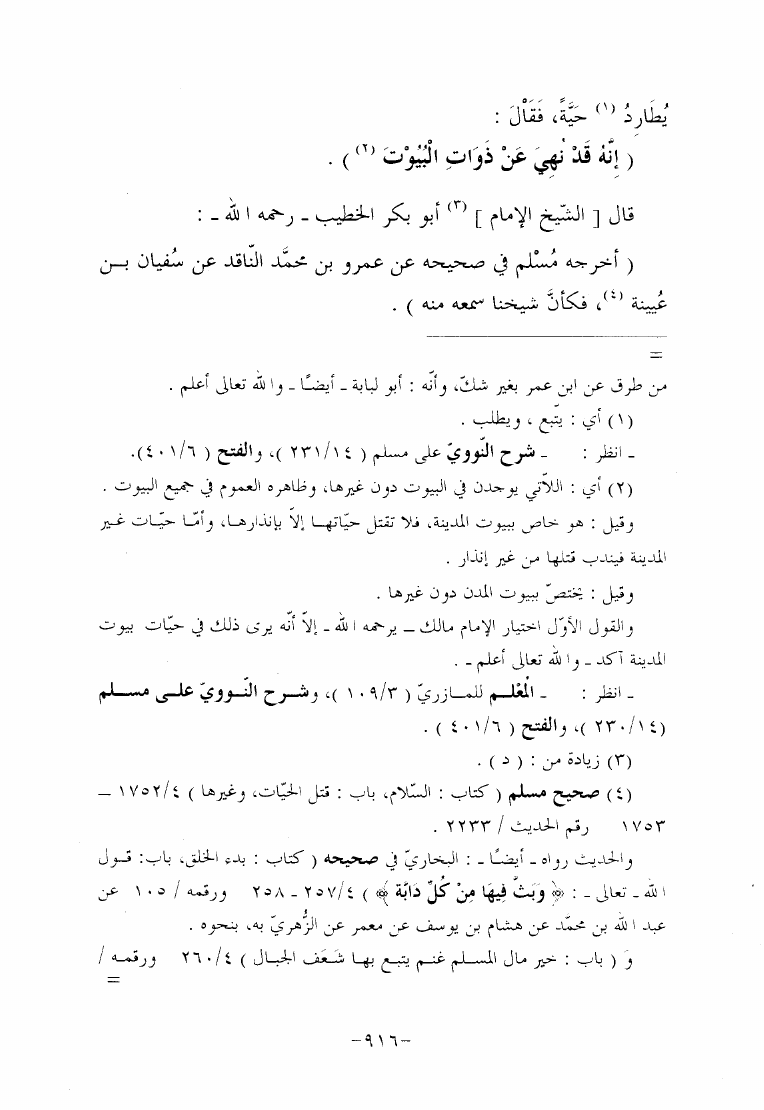 يُطَارِدُ (١) حَيَّةً، فَقَالَ :
( إِنَّهُ قَدْ نُهِيَ عَنْ ذَوَاتِ الْبُيُوْتِ (٢) ) .
قال [ الشّيخ الإمام ] (٣) أبو بكر الخطيب - رحمه الله - :
( أخرجه مُسْلم في صحيحه عن عمرو بن محمَّد النّاقد عن سُفيان بـن
عُيينة (٤)، فكأنَّ شيخنا سمعه منه ) .
=
من طرق عن ابن عمر بغير شكّ، وأنّه : أبو لبابة - أيضًـا - والله تعالى أعلم .
(١) أي : يتّبع ، ويطلب .
- انظر : - شرح النّوويّ على مسلم ( ٢٣١/١٤ )، والفتح ( ٤٠١/٦).
(٢) أي : اللاّتي يوجدن في البيوت دون غيرها، وظاهره العموم في جميع البيوت .
وقيل : هو خاص ببيوت المدينة، فلا تقتل حيّاتهـا إلاّ بإنذارهـا، وأمّـا حيّـات غـير
المدينة فيندب قتلها من غير إنذار .
وقيل : يختصّ ببيوت المدن دون غيرها .
والقول الأوّل اختيار الإمام مالك – يرحمه الله - إلاّ أنّه يرى ذلك في حيّات بيوت
المدينة آكد - والله تعالى أعلم - .
- انظر : - المُعْلـم للمـازريّ ( ١٠٩/٣ )، وشـرح النّـوويّ علـى مسـلم
(٢٣٠/١٤ )، والفتح ( ٤٠١/٦ ) .
(٣) زيادة من : ( د ) .
(٤) صحيح مسلم ( كتاب : السّلام، باب : قتل الحيّات، وغيرها ) ١٧٥٢/٤ –
١٧٥٣ رقم الحديث / ٢٢٣٣ .
والحديث رواه - أيضًـا - : البخاريّ في صحيحه ( كتاب : بدء الخلق، باب: قـول
الله - تعالى - : ﴿ وَبَثَّ فِيهَا مِنْ كُلِّ دَابَّة ﴾ ) ٢٥٧/٤ - ٢٥٨ ورقمـه / ١٠٥ عن
عبد الله بن محمّد عن هشام بن يوسف عن معمر عن الزُّهريّ به، بنحوه .
و ( باب : خير مال المسلم غنم يتبع بهـا شَـعَف الجبـال ) ٢٦٠/٤ ورقمـه /
=
-٩١٦-